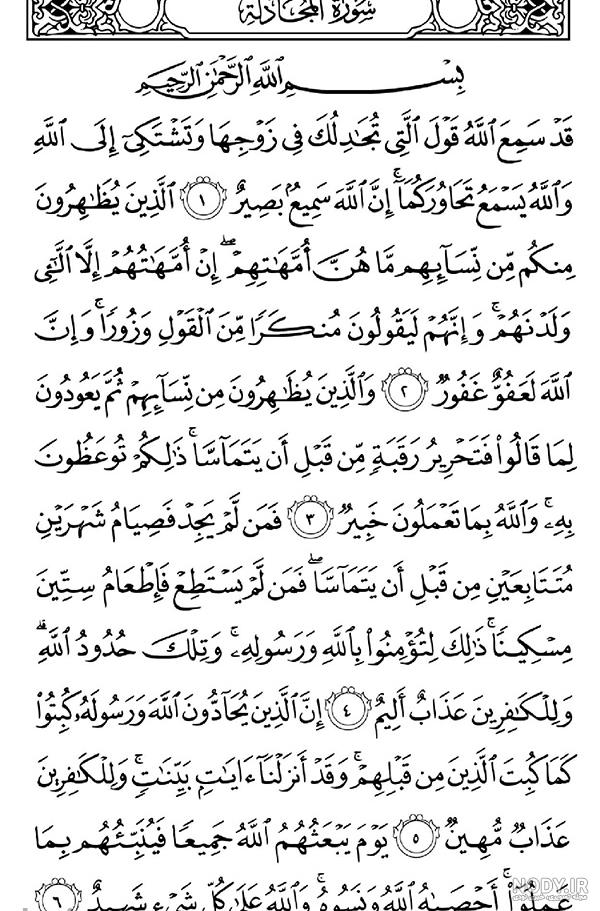 سُورَةُ المُجَادلة
بِسْمِ ٱللَّهِ ٱلرَّحْمَٰنِ ٱلرَّحِيمِ
قَدْ سَمِعَ ٱللَّهُ قَوْلَ ٱلَّتِى تُجَٰدِلُكَ فِى زَوْجِهَا وَتَشْتَكِىٓ إِلَى ٱللَّهِ
وَٱللَّهُ يَسْمَعُ تَحَاوُرَكُمَآ ۚ إِنَّ ٱللَّهَ سَمِيعٌۢ بَصِيرٌ ١ ٱلَّذِينَ يُظَٰهِرُونَ
مِنكُم مِّن نِّسَآئِهِم مَّا هُنَّ أُمَّهَٰتِهِمْ ۖ إِنْ أُمَّهَٰتُهُمْ إِلَّا ٱلَّٰٓـِٔى
وَلَدْنَهُمْ ۚ وَإِنَّهُمْ لَيَقُولُونَ مُنكَرًا مِّنَ ٱلْقَوْلِ وَزُورًا ۚ وَإِنَّ
ٱللَّهَ لَعَفُوٌّ غَفُورٌ ٢ وَٱلَّذِينَ يُظَٰهِرُونَ مِن نِّسَآئِهِمْ ثُمَّ يَعُودُونَ
لِمَا قَالُوا۟ فَتَحْرِيرُ رَقَبَةٍ مِّن قَبْلِ أَن يَتَمَآسَّا ۚ ذَٰلِكُمْ تُوعَظُونَ
بِهِۦ ۚ وَٱللَّهُ بِمَا تَعْمَلُونَ خَبِيرٌ ٣ فَمَن لَّمْ يَجِدْ فَصِيَامُ شَهْرَيْنِ
مُتَتَابِعَيْنِ مِن قَبْلِ أَن يَتَمَآسَّا ۖ فَمَن لَّمْ يَسْتَطِعْ فَإِطْعَامُ سِتِّينَ
مِسْكِينًا ۚ ذَٰلِكَ لِتُؤْمِنُوا۟ بِٱللَّهِ وَرَسُولِهِۦ ۚ وَتِلْكَ حُدُودُ ٱللَّهِ ۗ
وَلِلْكَٰفِرِينَ عَذَابٌ أَلِيمٌ ٤ إِنَّ ٱلَّذِينَ يُحَآدُّونَ ٱللَّهَ وَرَسُولَهُۥ كُبِتُوا۟
كَمَا كُبِتَ ٱلَّذِينَ مِن قَبْلِهِمْ ۚ وَقَدْ أَنزَلْنَآ ءَايَٰتٍۭ بَيِّنَٰتٍ ۚ وَلِلْكَٰفِرِينَ
عَذَابٌ مُّهِينٌ ٥ يَوْمَ يَبْعَثُهُمُ ٱللَّهُ جَمِيعًا فَيُنَبِّئُهُم بِمَا
عَمِلُوٓا۟ ۚ أَحْصَىٰهُ ٱللَّهُ وَنَسُوهُ ۚ وَٱللَّهُ عَلَىٰ كُلِّ شَىْءٍ شَهِيدٌ ٦
NODY.IR